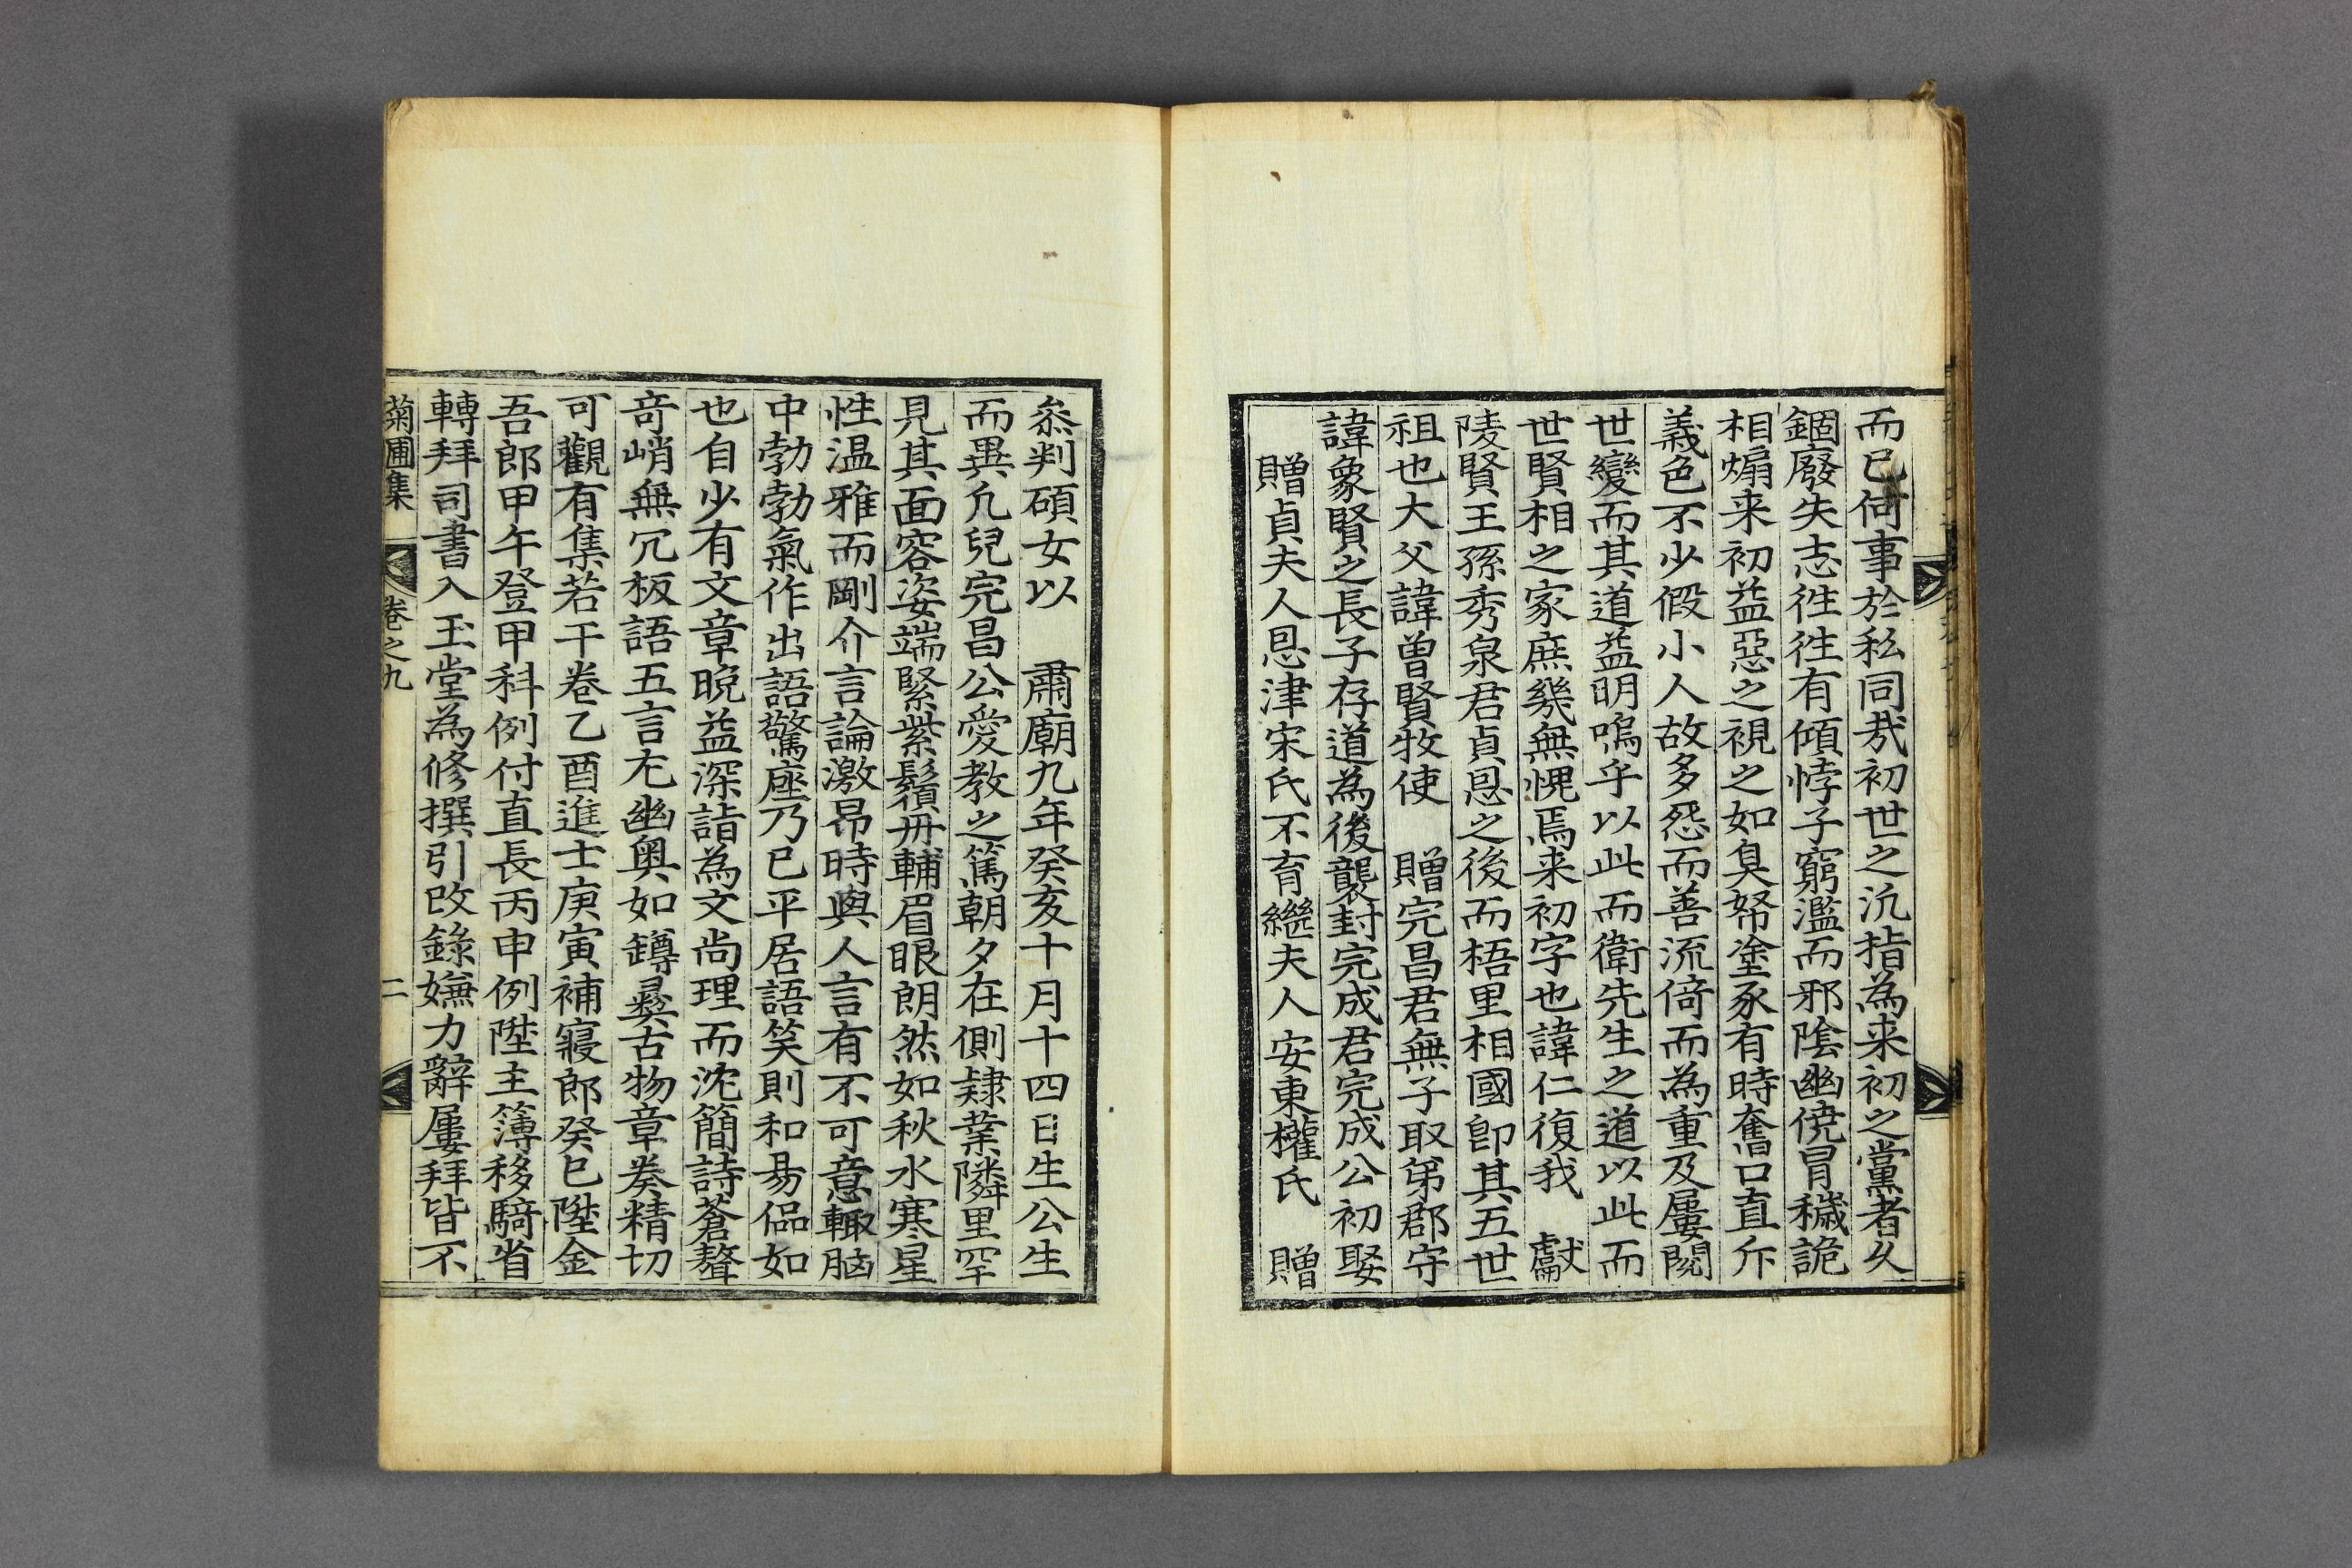 而已何事於私同哉初世之沉指為来初之黨者久
錮廢失志徃徃有傾悖子窮濫而邪陰幽僥冐穢詭
相煽来初益惡之視之如臭帑塗豕有時奮口直斥
義色不少假小人故多怨而善流倚而為重及屢閱
世變而其道益明嗚乎以此而衛先生之道以此而
世賢相之家庶幾無愧焉来初字也諱仁復我 獻
陵賢王孫秀泉君貞恩之後而梧里相國卽其五世
祖也大父諱曾賢牧使 贈完昌君無子取弟郡守
諱象賢之長子存道為後襲封完成君完成公初娶
贈貞夫人恩津宋氏不育繼夫人安東權氏 贈
叅判碩女以 肅廟九年癸亥十月十四日生公生
而異凡兒完昌公愛教之篤朝夕在側隷業隣里罕
見其面容姿端緊紫鬚丹輔眉眼朗然如秋水寒星
性温雅而剛介言論激昂時與人言有不可意輙脑
中勃勃氣作出語驚座乃已平居語笑則和昜偘如
也自少有文章晩益深詣為文尚理而沈簡詩蒼鼇
奇峭無冗板語五言尤幽奥如鐏彛古物章奏精切
可觀有集若干卷乙酉進士庚寅補寢郎癸巳陞金
吾郎甲午登甲科例付直長丙申例陞主簿移騎省
轉拜司書入玉堂為修撰引改錄嫵力辭屢拜皆不
菊圃集 卷之九 二